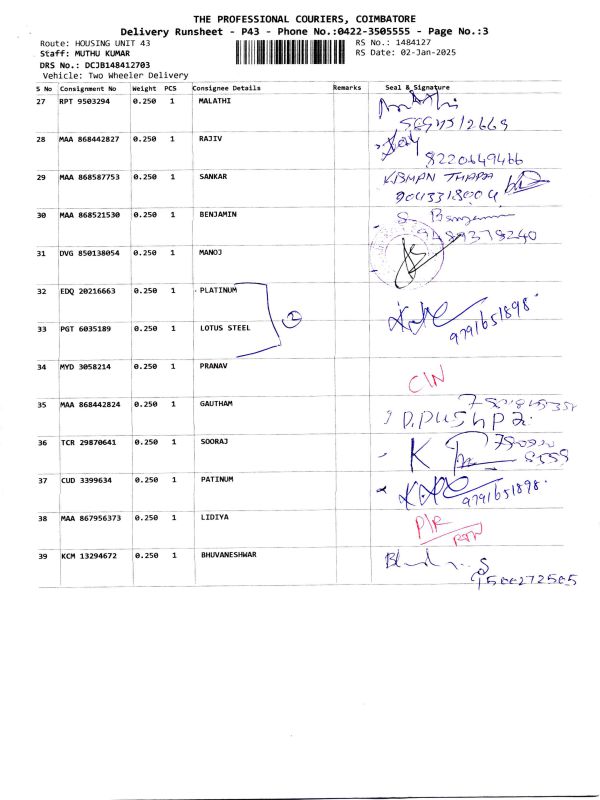 THE PROFESSIONAL COURIERS, COIMBATORE
Delivery Runsheet - P43 - Phone No.:0422-3505555 - Page No.:3
Route: HOUSING UNIT 43 RS No.: 1484127
Staff: MUTHU KUMAR RS Date: 02-Jan-2025
DRS No.: DCJB148412703
Vehicle: Two Wheeler Delivery
S No Consignment No Weight PCS Consignee Details Remarks Seal & Signature
27 RPT 9503294 0.250 1 MALATHI
28 MAA 868442827 0.250 1 RAJIV
8220649466
29 MAA 868587753 0.250 1 SANKAR KBMAN THAPA
9043318004
30 MAA 868521530 0.250 1 BENJAMIN S. Benjamin
9489378240
31 DVG 850138054 0.250 1 MANOJ
32 EDQ 20216663 0.250 1 PLATINUM
2
9791651898
33 PGT 6035189 0.250 1 LOTUS STEEL
34 MYD 3058214 0.250 1 PRANAV
C/N
35 MAA 868442824 0.250 1 GAUTHAM
D.PUSHPA
36 TCR 29870641 0.250 1 SOORAJ
K
37 CUD 3399634 0.250 1 PATINUM
9791651898
38 MAA 867956373 0.250 1 LIDIYA P/R
RTN
39 KCM 13294672 0.250 1 BHUVANESHWAR
9500272505